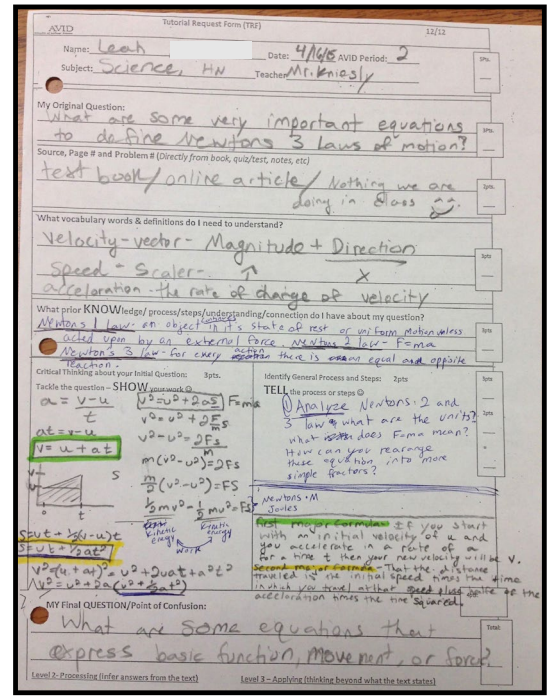 AVID
Tutorial Request Form (TRF)
12/12
Name: Leah
Date: 4/16/15 AVID Period: 2
Subject: Science, HN
Teacher Mr. Kniesly
5Pts.
My Original Question:
What are some very important equations
to define Newtons 3 laws of motion?
1Pts.
Source, Page # and Problem # (Directly from book, quiz/test, notes, etc)
text book/online article/ Nothing we are
doing in class
2pts.
What vocabulary words & definitions do I need to understand?
Velocity - vector - Magnitude + Direction
Speed - Scaler - ↑ X
acceleration - the rate of change of velocity
3pts
What prior KNOWledge/ process/steps/understanding/connection do I have about my question?
Newtons 1 law - an object continues in it's state of rest or uniform motion unless
acted upon by an external force. Newtons 2 law - F=ma
Newton's 3 law - for every action there is an equal and opposite
reaction.
3pts
Critical Thinking about your Initial Question: 3pts.
Tackle the question – SHOW your work ☺
a = v-u
t
at = v-u
v = u + at
v² = u² + 2as F=ma
v² = u² + 2Fs
m
v² - u² = 2Fs
m
m(v²-u²) = 2Fs
m/2 (v²-u²) = FS
½mv² - ½mu² = FS
Kinetic energy
Kinetic energy
work
v
u
0 t
S
s=ut + ½(v-u)t
s=ut + ½at²
v² = (u+at)² = u² + 2uat + a²t²
v² = u² + 2a(ut + ½at²)
Identify General Process and Steps: 2pts
TELL the process or steps ☺
① Analyze Newtons 2 and
3 law & what are the units?
what does F=ma mean?
How can you rearange
these equation into more
simple fractors?
Newtons • M
Joules
3pts
2pts
First major formula: If you start
with an initial velocity of u and
you accelerate in a rate of a
for a time t then your new velocity will be v.
Second major formula - That the distance
traveled is the initial speed times the time
in which you travel at that speed plus half of the
acceloration times the time squared.
MY Final QUESTION/Point of Confusion:
What are some equations that
express basic function, movement, or force?
Total:
Level 2- Processing (Infer answers from the text)
Level 3 – Applying (thinking beyond what the text states)